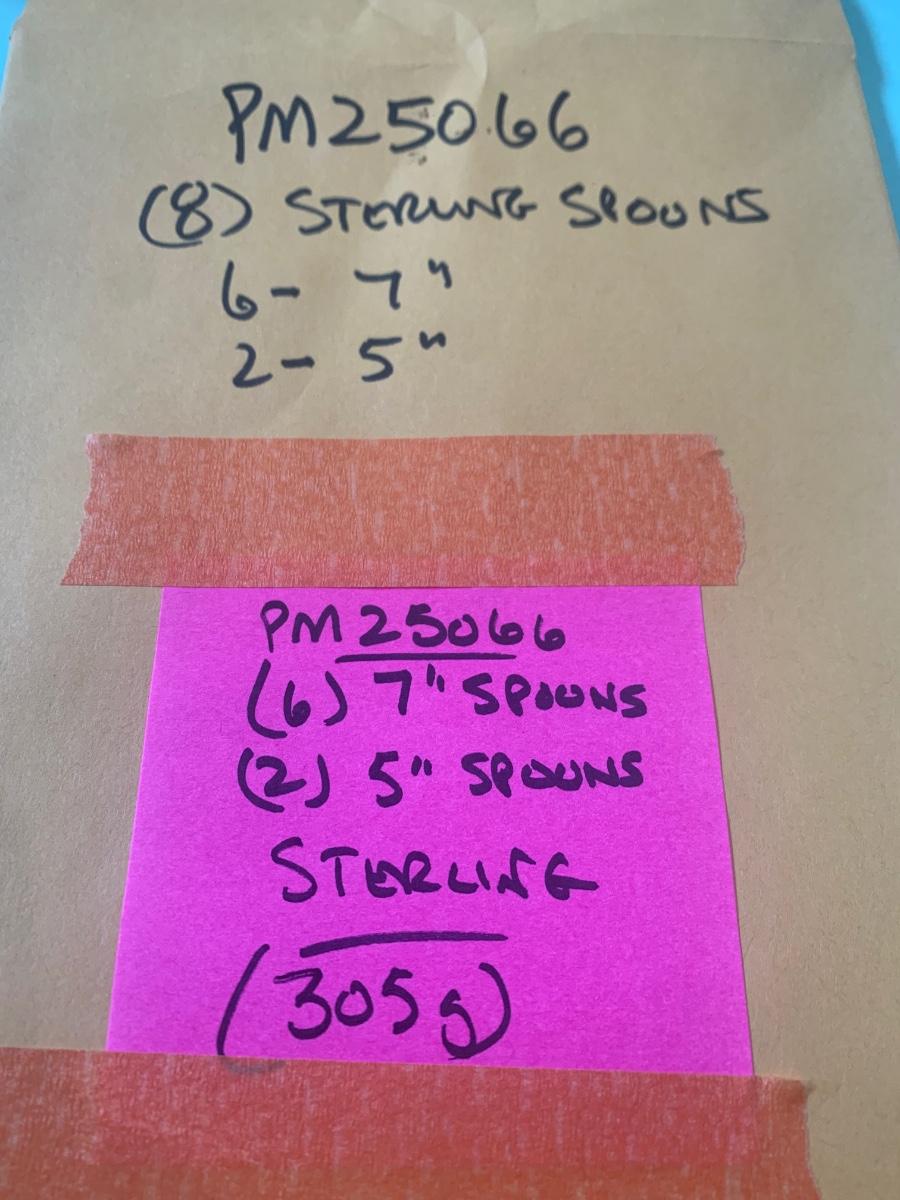 PM25066
(8) STERLING SPOONS
6- 7"
2- 5"
PM25066
(6) 7" SPOONS
(2) 5" SPOONS
STERLING
(305g)